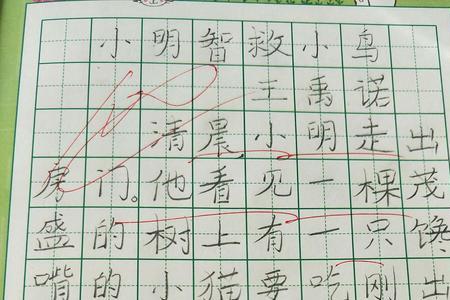 小明智救小鸟
王禹诺
清晨小明走出
房门。他看见一棵茂
盛的树上有一只馋
嘴的小猫要吃刚出